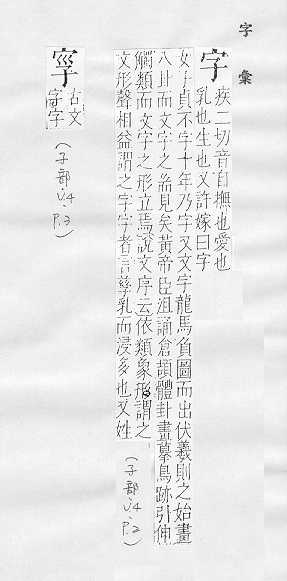 字彙
字
疾二切音自撫也愛也
乳也生也又許嫁曰字
女子貞不字十年乃字又文字龍馬負圖而出伏羲則之始畫
八卦而文字之耑見矣黃帝臣沮誦倉頡體卦畫摹鳥跡引伸
觸類而文字之形立焉說文序云依類象形謂之
文形聲相益謂之字字者言孳乳而浸多也又姓
(子部.V.4 P.2)
古文
字字
(子部.V.4 P.3)